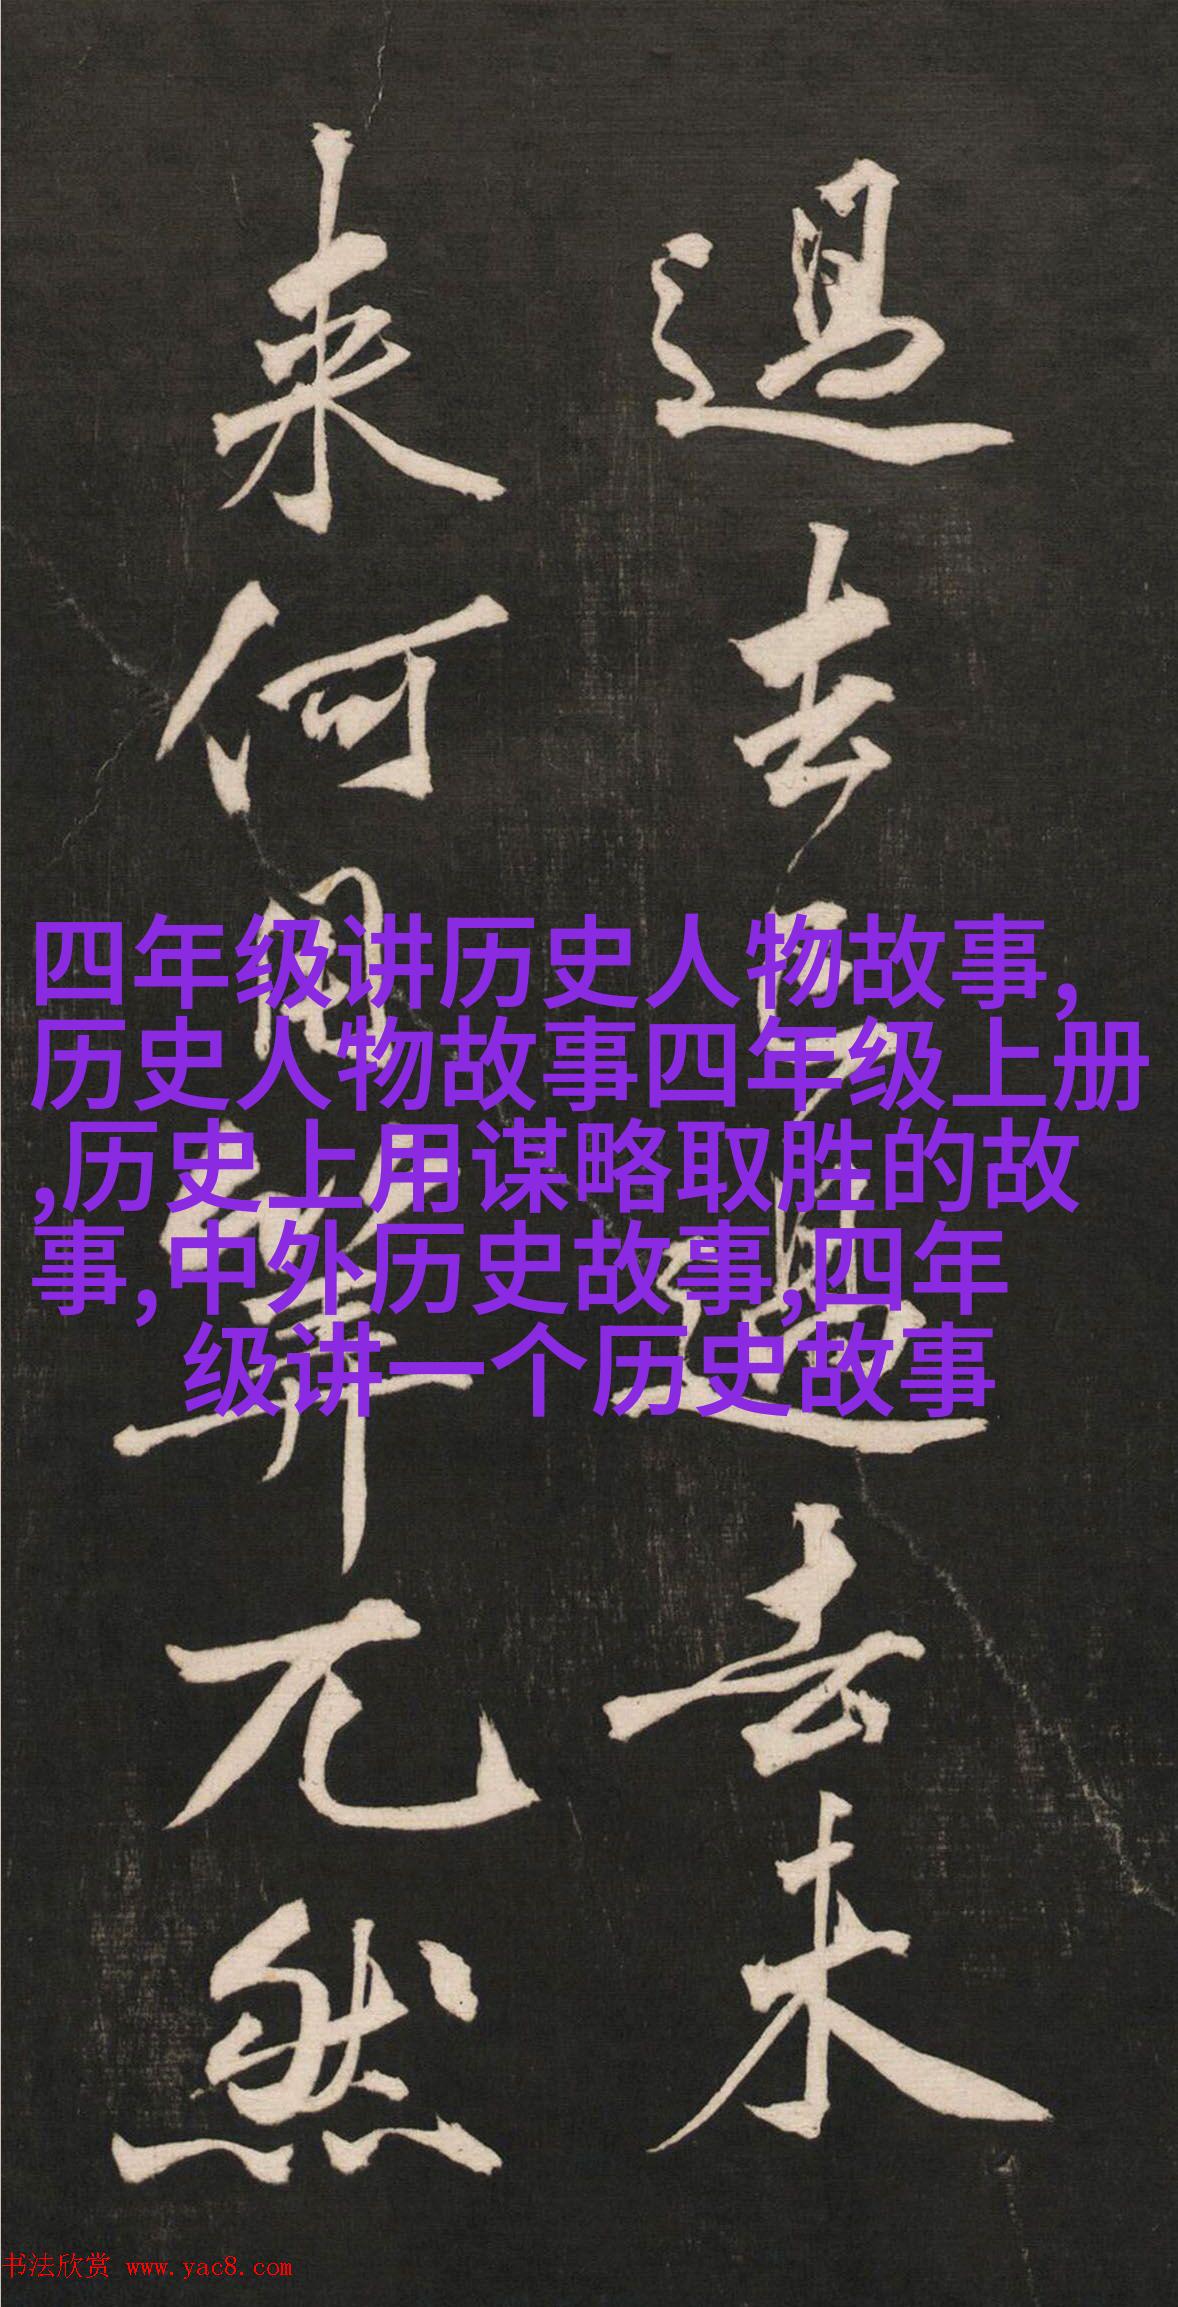 過去已過去未
来何用筭兀然
四年级讲历史人物故事,
历史人物故事四年级上册
,历史上用谋略取胜的故
事,中外历史故事,四年
级讲一个历史故事
书法欣赏 www.yac8.com